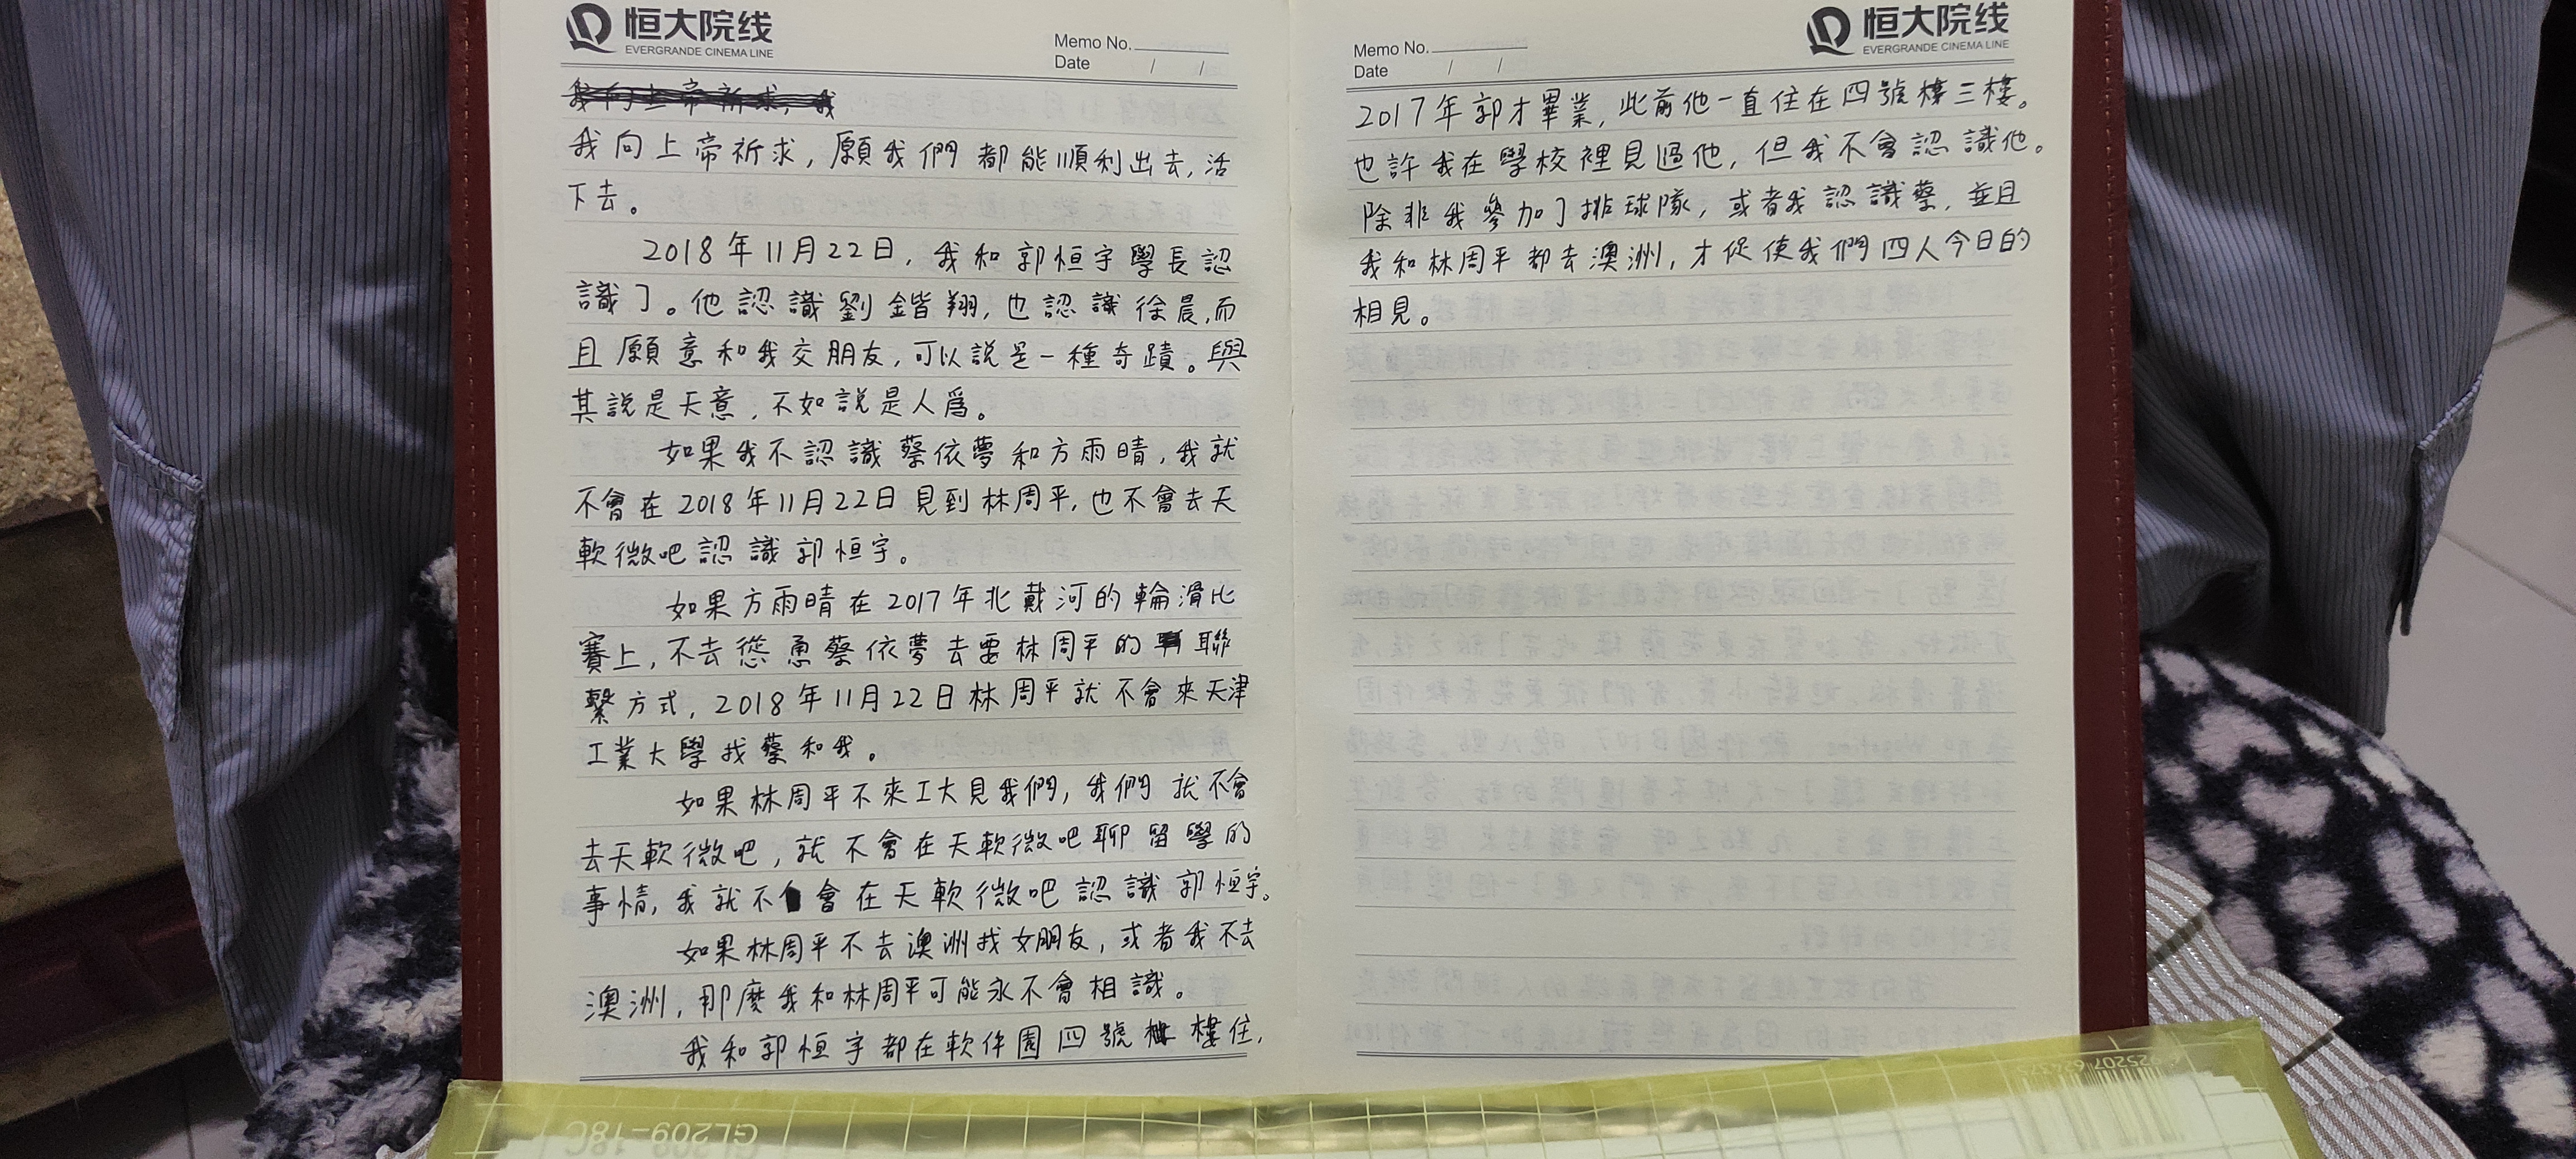 恒大院线
EVERGRANDE CINEMA LINE
Memo No.
Date / /
我向上帝祈求，我
我向上帝祈求，願我們都能順利出去，活
下去。
2018年11月22日，我和郭恒宇學長認
識了。他認識劉鍇翔，也認識徐晨，而
且願意和我交朋友，可以說是一種奇蹟。與
其說是天意，不如說是人爲。
如果我不認識蔡依夢和方雨晴，我就
不會在2018年11月22日見到林周平，也不會去天
軟微吧認識郭恒宇。
如果方雨晴在2017年北戴河的輪滑比
賽上，不去慫恿蔡依夢去要林周平的聯
繫方式，2018年11月22日林周平就不會來天津
工業大學找蔡和我。
如果林周平不來工大見我們，我們就不會
去天軟微吧，就不會在天軟微吧聊留學的
事情，我就不會在天軟微吧認識郭恒宇。
如果林周平不去澳洲找女朋友，或者我不去
澳洲，那麼我和林周平可能永不會相識。
我和郭恒宇都在軟件園四號樓住，
恒大院线
EVERGRANDE CINEMA LINE
Memo No.
Date / /
2017年郭才畢業，此前他一直住在四號樓三樓。
也許我在學校裡見過他，但我不會認識他。
除非我參加了排球隊，或者我認識蔡，並且
我和林周平都去澳洲，才促使我們四人今日的
相見。
GL209-18C